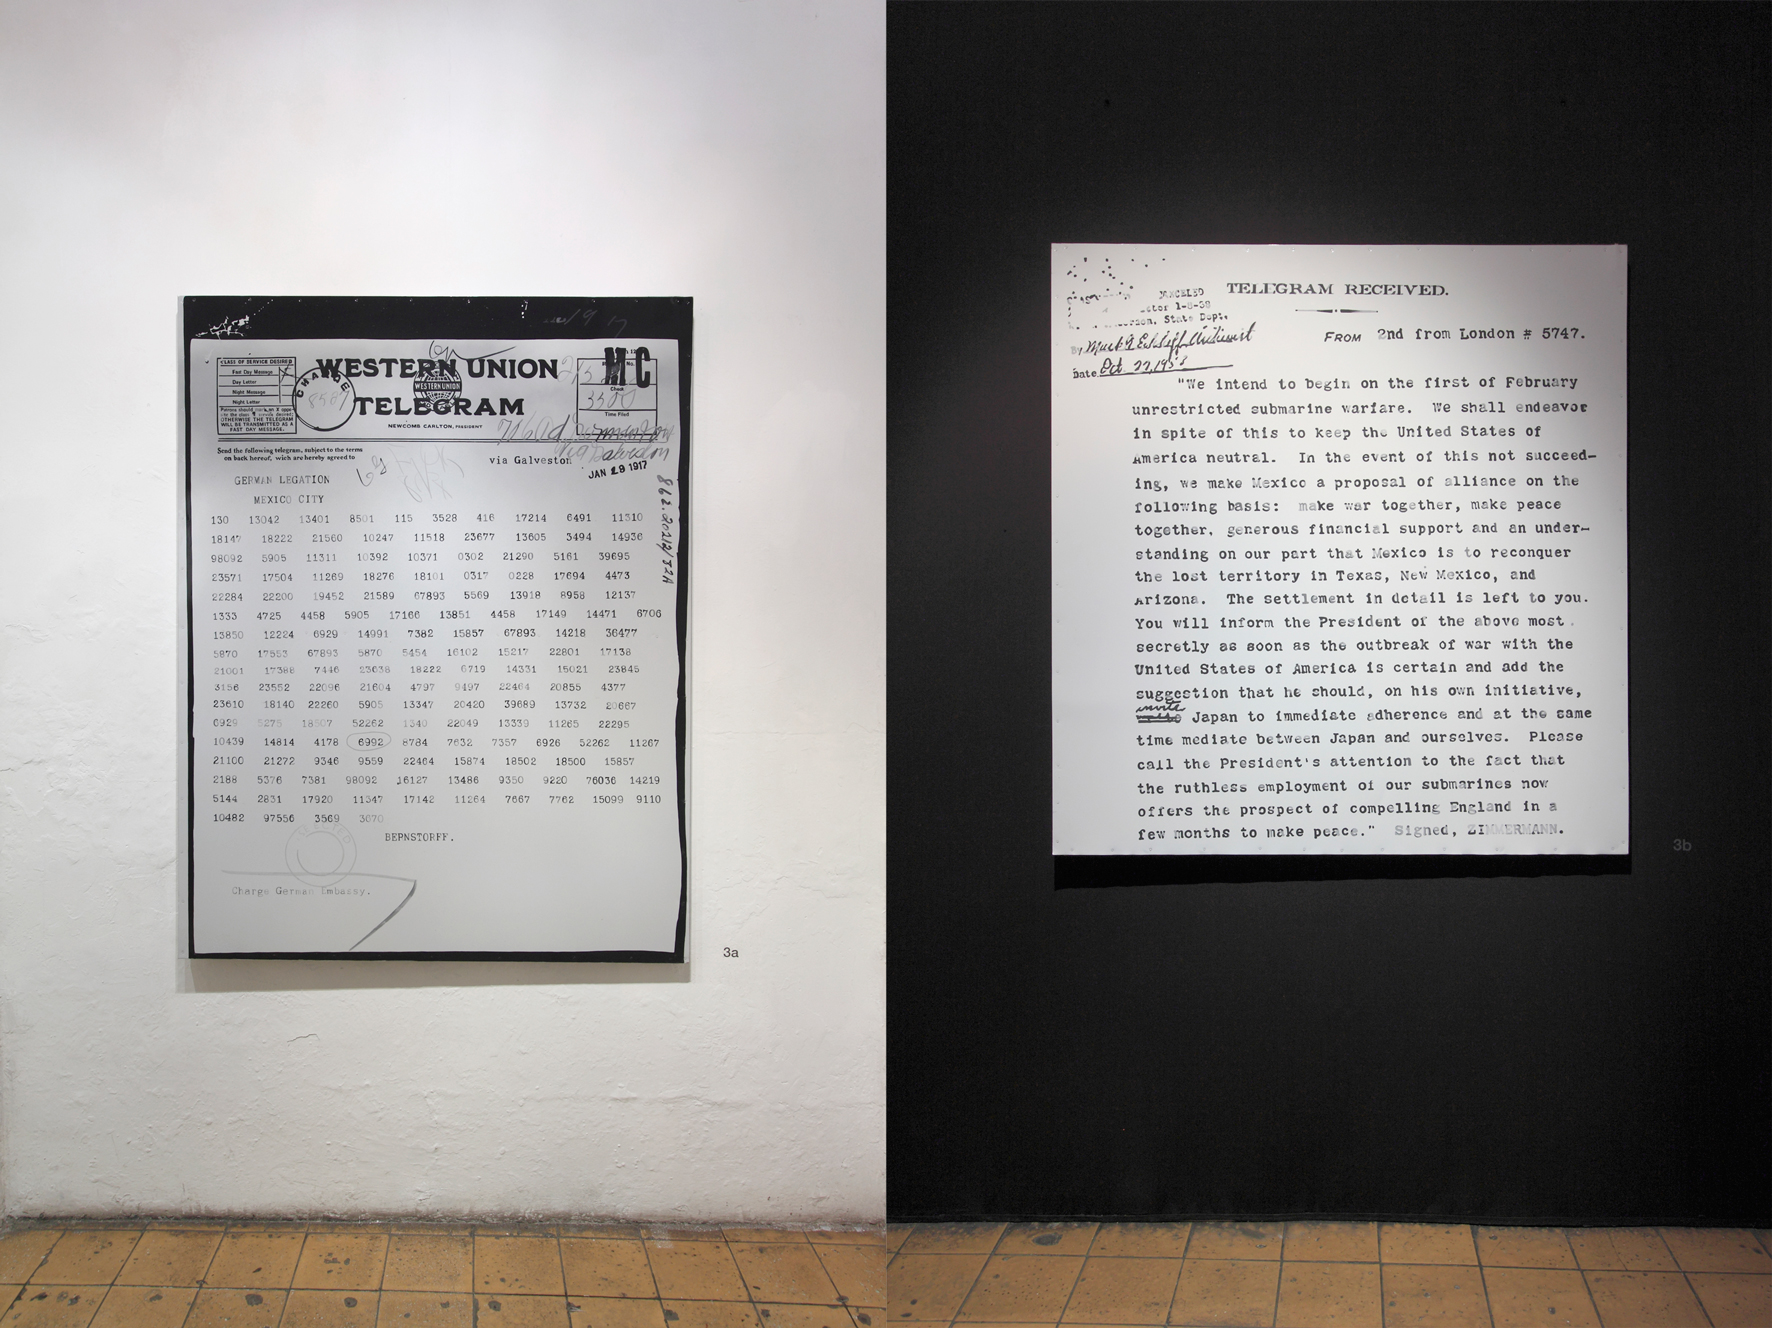 WESTERN UNION
TELEGRAM
WESTERN UNION
NEWCOMB CARLTON, PRESIDENT
CLASS OF SERVICE DESIRED
Fast Day Message
Day Letter
Night Message
Night Letter
Patrons should mark an X oppo-
site the class of service desired;
OTHERWISE THE TELEGRAM
WILL BE TRANSMITTED AS A
FAST DAY MESSAGE.
CHARGE
8587
MC
Check
Time Filed
Send the following telegram, subject to the terms
on back hereof, wich are hereby agreed to
via Galveston
JAN 29 1917
862.20212/82A
GERMAN LEGATION
MEXICO CITY
130 13042 13401 8501 115 3528 416 17214 6491 11310
18147 18222 21560 10247 11518 23677 13605 3494 14936
98092 5905 11311 10392 10371 0302 21290 5161 39695
23571 17504 11269 18276 18101 0317 0228 17694 4473
22284 22200 19452 21589 67893 5569 13918 8958 12137
1333 4725 4458 5905 17166 13851 4458 17149 14471 6706
13850 12224 6929 14991 7382 15857 67893 14218 36477
5870 17553 67893 5870 5454 16102 15217 22801 17138
21001 17388 7446 23638 18222 6719 14331 15021 23845
3156 23552 22096 21604 4797 9497 22464 20855 4377
23610 18140 22260 5905 13347 20420 39689 13732 20667
6929 5275 18507 52262 1340 22049 13339 11265 22295
10439 14814 4178 6992 8784 7632 7357 6926 52262 11267
21100 21272 9346 9559 22464 15874 18502 18500 15857
2188 5376 7381 98092 16127 13486 9350 9220 76036 14219
5144 2831 17920 11347 17142 11264 7667 7762 15099 9110
10482 97556 3569 3670
BEPNSTORFF.
Charge German Embassy.
3a
TELEGRAM RECEIVED.
State Dept.
Date Oct. 27, 1958
FROM 2nd from London # 5747.
"We intend to begin on the first of February
unrestricted submarine warfare. We shall endeavor
in spite of this to keep the United States of
America neutral. In the event of this not succeed-
ing, we make Mexico a proposal of alliance on the
following basis: make war together, make peace
together, generous financial support and an under-
standing on our part that Mexico is to reconquer
the lost territory in Texas, New Mexico, and
Arizona. The settlement in detail is left to you.
You will inform the President of the above most
secretly as soon as the outbreak of war with the
United States of America is certain and add the
suggestion that he should, on his own initiative,
invite
Japan to immediate adherence and at the same
time mediate between Japan and ourselves. Please
call the President's attention to the fact that
the ruthless employment of our submarines now
offers the prospect of compelling England in a
few months to make peace." Signed, ZIMMERMANN.
3b